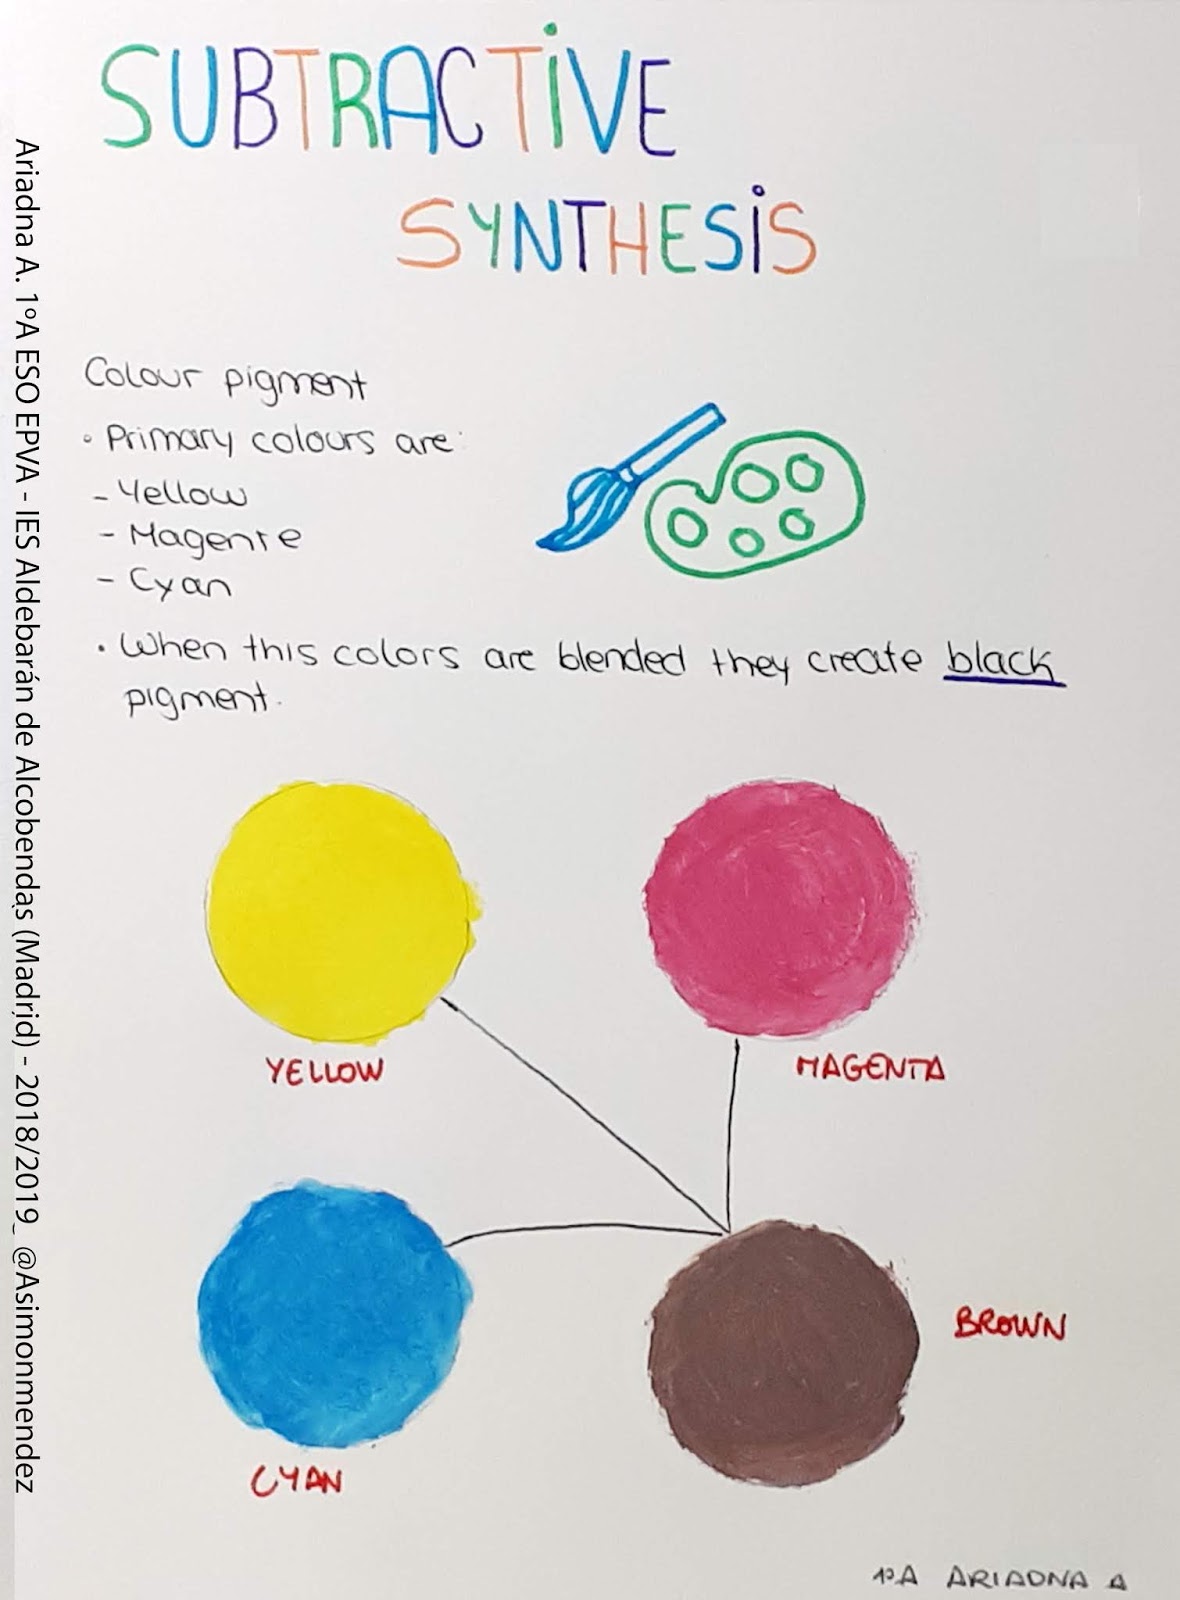 SUBTRACTiVE
SYNTHESiS
Colour pigment
• Primary colours are:
- Yellow
- Magente
- Cyan
• When this colors are blended they create black
pigment.
YELLOW
MAGENTA
CYAN
BROWN
1ºA ARIADNA A
Ariadna A. 1ºA ESO EPVA - IES Aldebarán de Alcobendas (Madrid) - 2018/2019_ @Asimonmendez